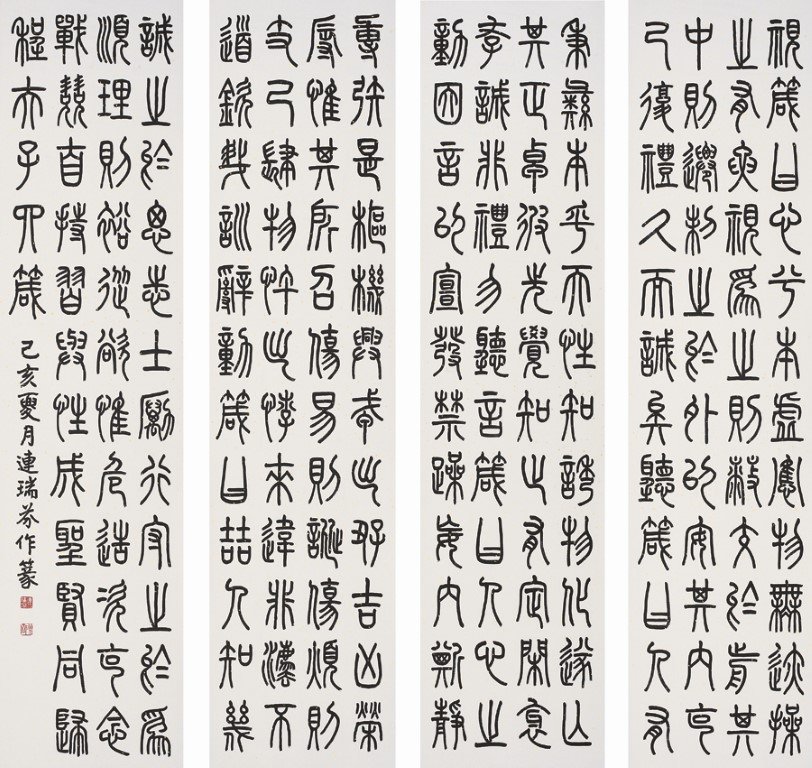 視箴曰心兮本虛應物無迹操
之有要視為之則蔽交於前其
中則遷制之於外以安其內克
己復禮久而誠矣聽箴曰人有
秉彝本乎天性知誘物化遂亡
其正卓彼先覺知止有定閑衺
存誠非禮勿聽言箴曰人心之
動因言以宣發禁躁妄內斯靜
專矧是樞機興戎出好吉凶榮
辱惟其所召傷易則誕傷煩則
支己肆物忤出悖來違非灋不
道欽哉訓辭動箴曰喆人知幾
誠之於思志士勵行守之於為
順理則裕從欲惟危造次克念
戰兢自持習與性成聖賢同歸
程夫子四箴 己亥夏月連瑞芬作篆